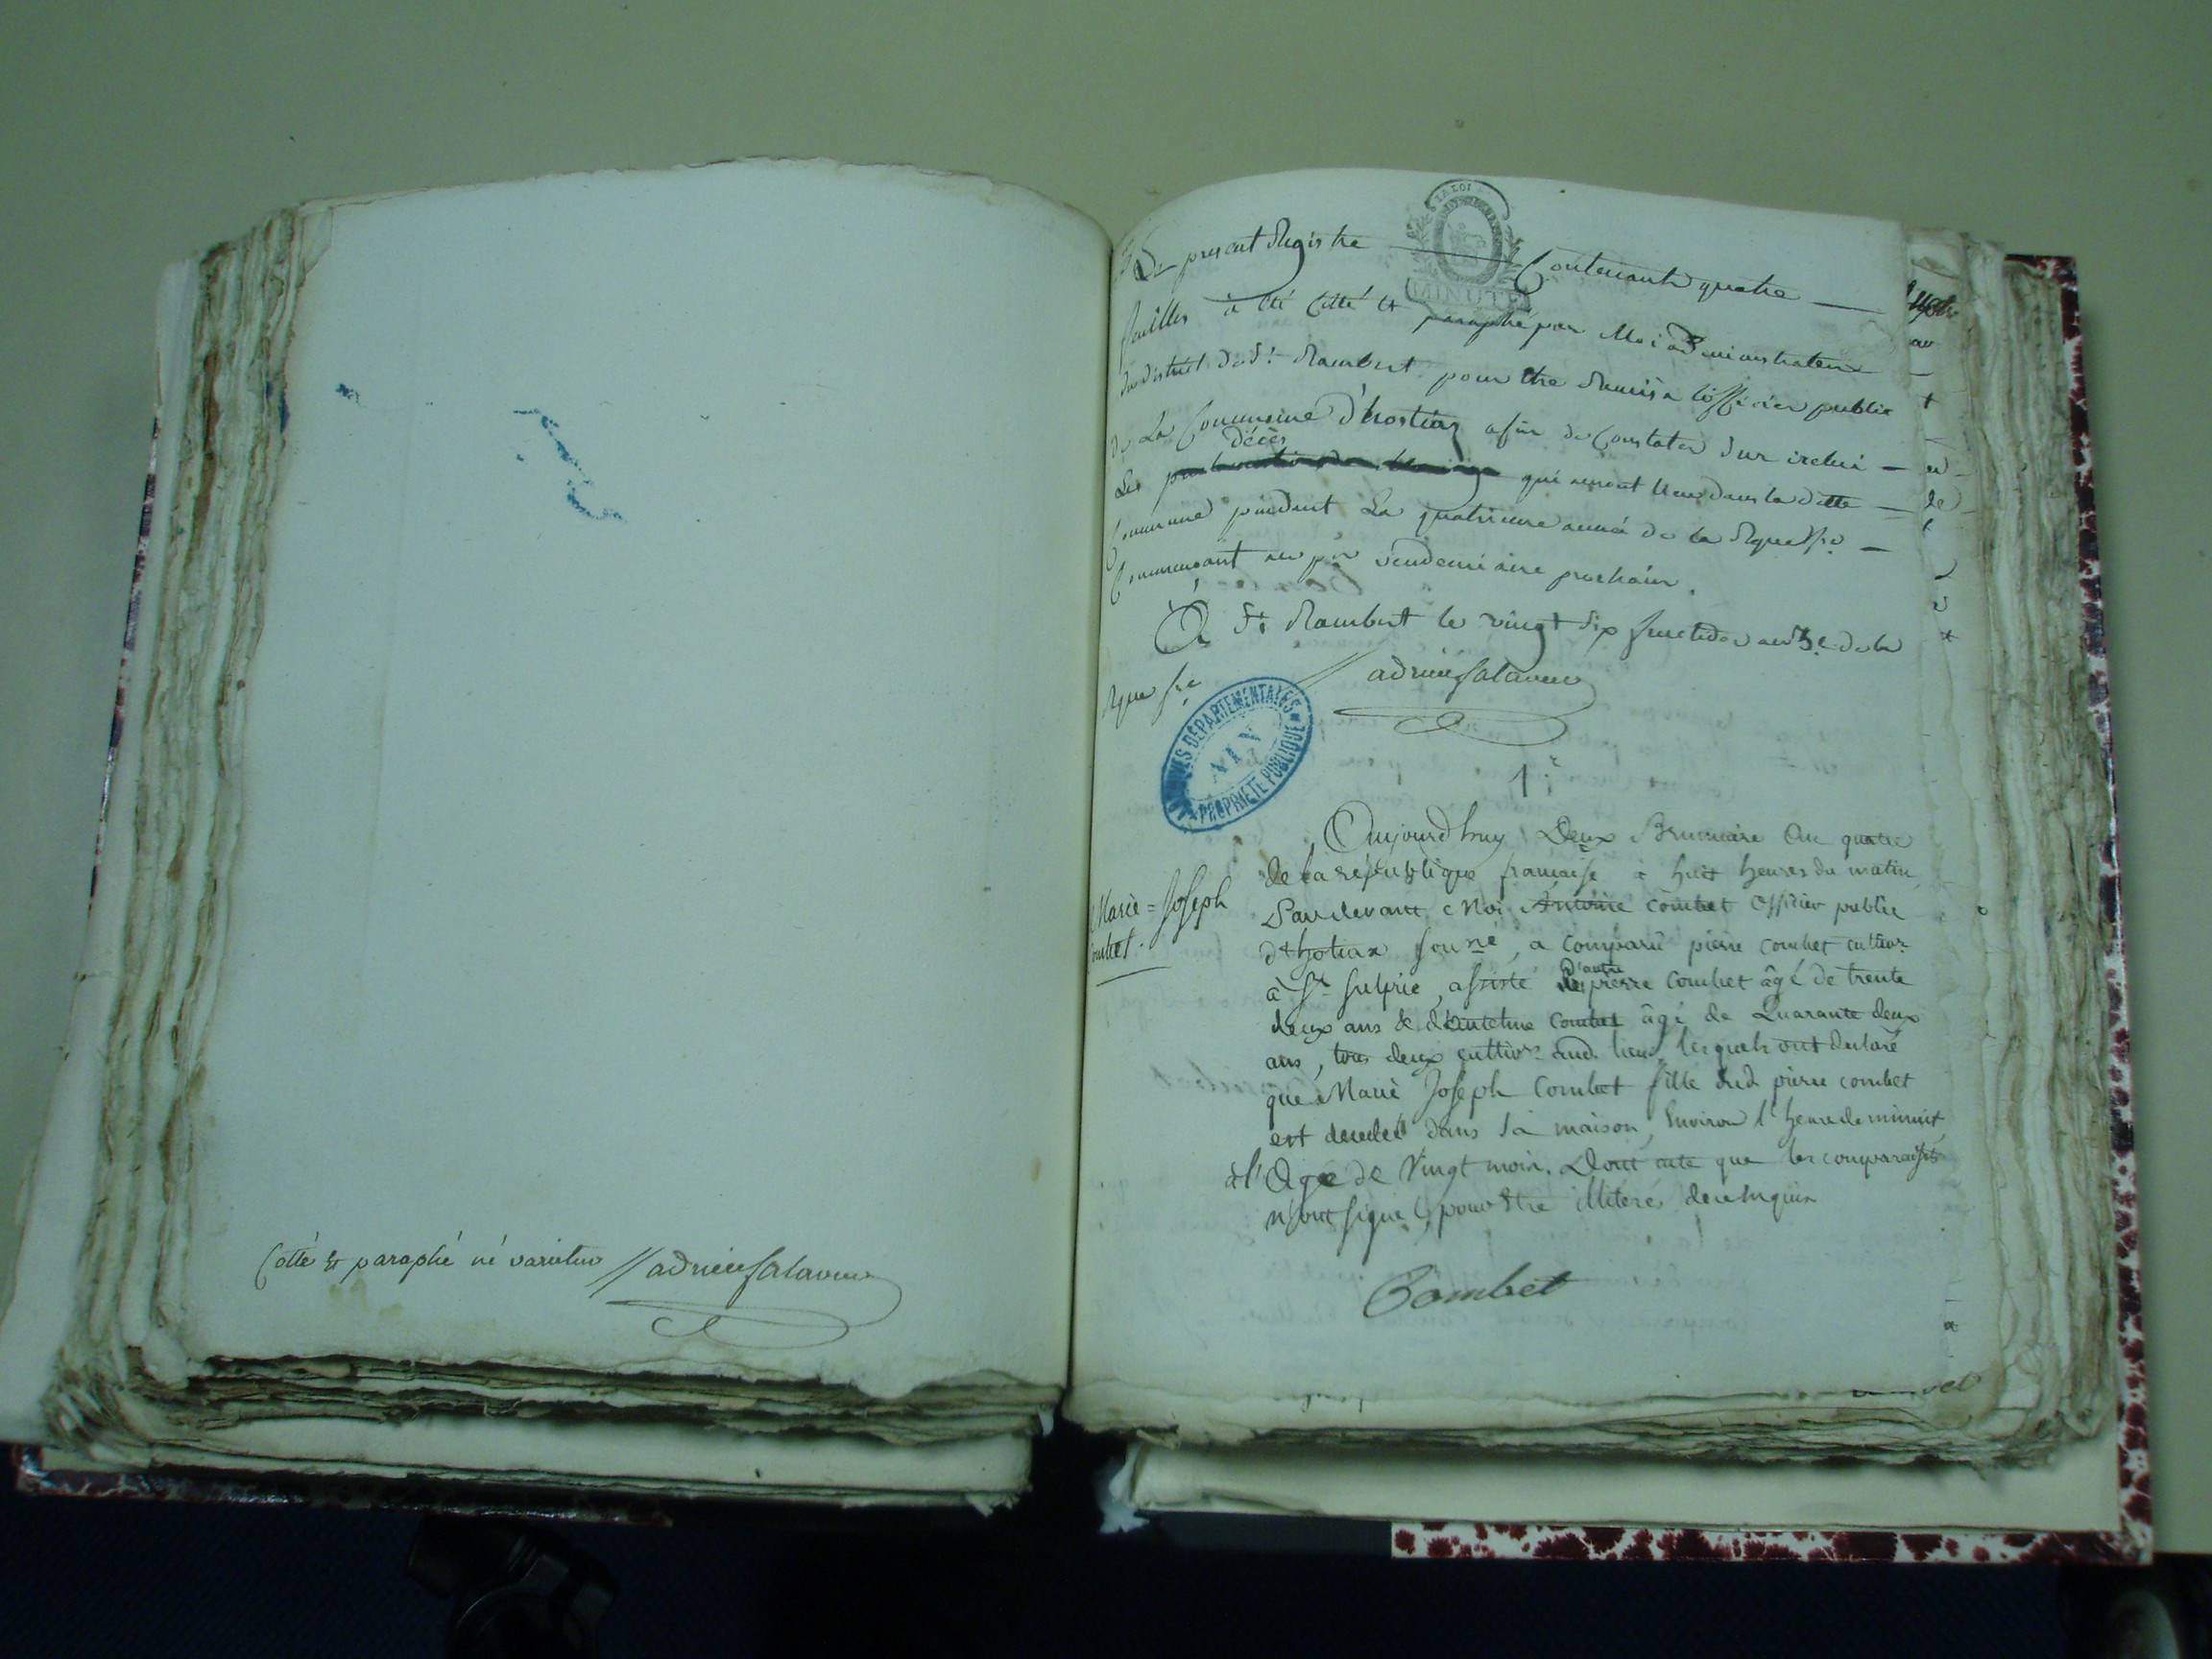 Cotté & paraphé né varietur
LA LOI
MINUTE
Le present Registre Contenant quatre
feuilles à été Cotté et paraphé par Moi administrateur
du district de St Rambert pour être Remis a l'officier public
de La Commune d'hostiaz afin de Constater Sur icelui
décès
Les qui seront lieu dans la ditte
Commune pendant La quatrieme année de la Rque
Commencant au per vendemiaire prochain.
A St Rambert le vingt six fructidor an 3e de la
Rque fse
ARCHIVES DÉPARTEMENTALES
AIN
PROPRIÉTÉ PUBLIQUE
1er
Marie = Joseph
Combet.
Aujourd huy Deux Brumaire An quatre
de la république francaise à huit heures du matin
Pardevant Moi Antoine combet officier public
d'hotiax sousné, a comparu pierre combet cultivr
à St Sulpice, assisté d'autre pierre Combet âgé de trente
deux ans & d'antelme Combet âgé de Quarante deux
ans, tous deux cultivrs aud. lieu, lesquels ont declaré
que Marie Joseph Combet fille dud pierre combet
est decedeé dans sa maison, Environ l'heure de minuit
à l'Age de Vingt mois. Dont acte que les comparaissts
n'ont signé, pour être illiterés de ce enquis
Combet